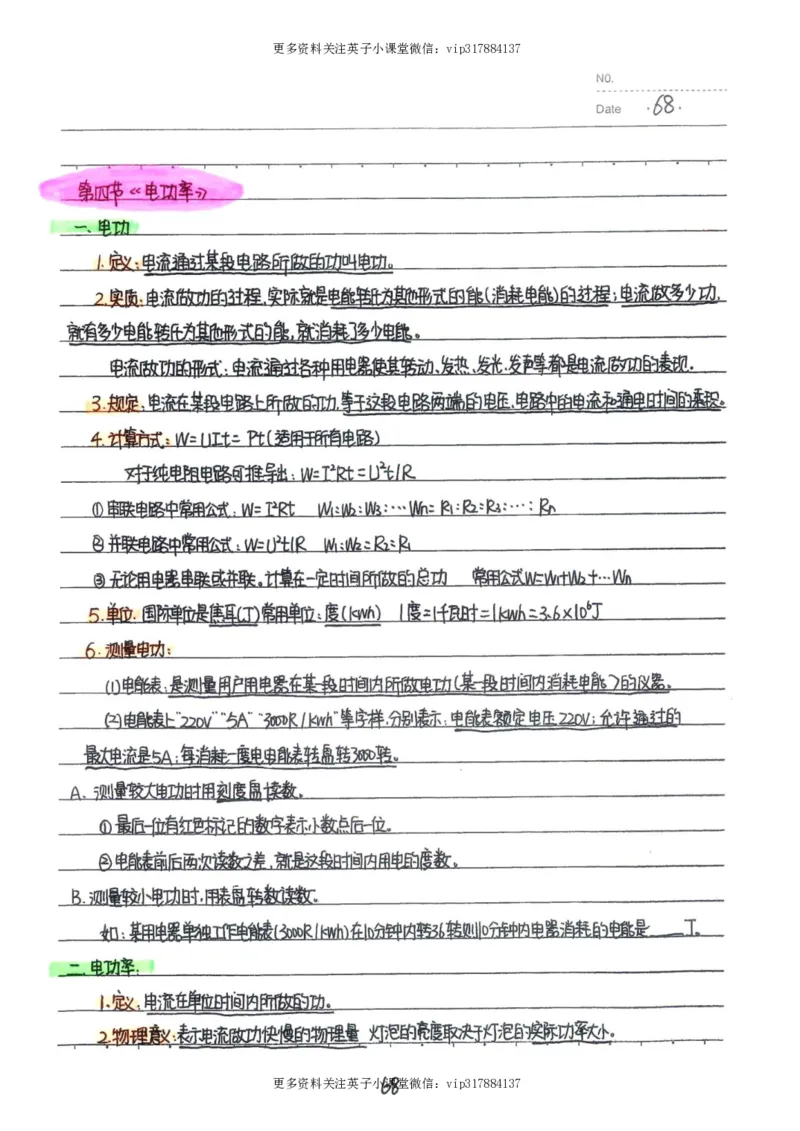 更多资料关注英子小课堂微信：vip317884137
NO.
Date ·68·
第四节《电功率》
一、电功
1.定义：电流通过某段电路所做的功叫电功。
2.实质：电流做功的过程，实际就是电能转化为其他形式的能（消耗电能）的过程；电流做多少功，
就有多少电能转化为其他形式的能，就消耗了多少电能。
电流做功的形式：电流通过各种用电器使其转动、发热、发光、发声等都是电流做功的表现.
3.规定：电流在某段电路上所做的功，等于这段电路两端的电压、电路中的电流和通电时间的乘积。
4.计算方式：W=UIt=Pt（适用于所有电路）
对于纯电阻电路可推导出：W=I²Rt=U²t/R
①串联电路中常用公式：W=I²Rt W₁:W₂:W₃:…Wn=R₁:R₂:R₃:…:Rn
②并联电路中常用公式：W=U²t/R W₁:W₂=R₂:R₁
③无论用电器串联或并联。计算在一定时间所做的总功 常用公式W=W₁+W₂+…Wn
5.单位.国际单位是焦耳(J)常用单位：度(kwh) 1度=1千瓦时=1kwh=3.6×10⁶J
6.测量电功：
(1)电能表：是测量用户用电器在某段时间内所做电功（某一段时间内消耗电能）的仪器。
(2)电能表上“220V”“5A”“3000R/kwh”等字样，分别表示：电能表额定电压220V；允许通过的
最大电流是5A；每消耗一度电电能表转盘转3000转。
A.测量较大电功时用刻度盘读数。
①最后一位有红色标记的数字表示小数点后一位。
②电能表前后两次读数之差，就是这段时间内用电的度数。
B.测量较小电功时，用表盘转数读数。
如：某用电器单独工作电能表(3000R/kwh)在10分钟内转36转则10分钟内电器消耗的电能是____J。
二、电功率：
1.定义：电流在单位时间内所做的功。
2.物理意义：表示电流做功快慢的物理量 灯泡的亮度取决于灯泡的实际功率大小。
更多资料关注英子小课堂微信：vip317884137
68